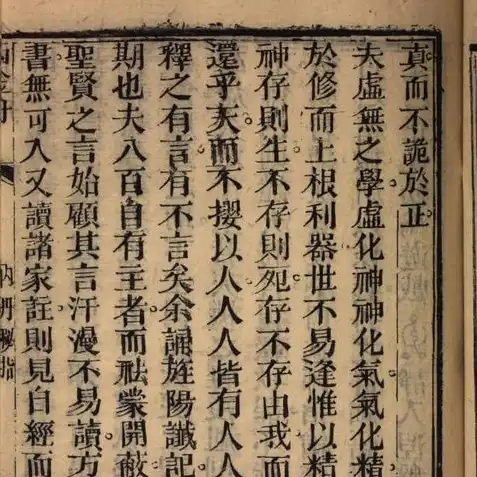 真而不詭於正
夫虛無之學虛化神神化氣氣化精
於修而上根利器世不易逢惟以精
神存則生不存則死存不存由我而
還乎天而不攖以人人人皆有人人
釋之有言有不言矣余誦旌陽讖記
期也夫八百自有主者而祛蒙開蔽
聖賢之言始顧其言汗漫不易讀方
書無可入又讀諸家註則見自經而
內丹秘指